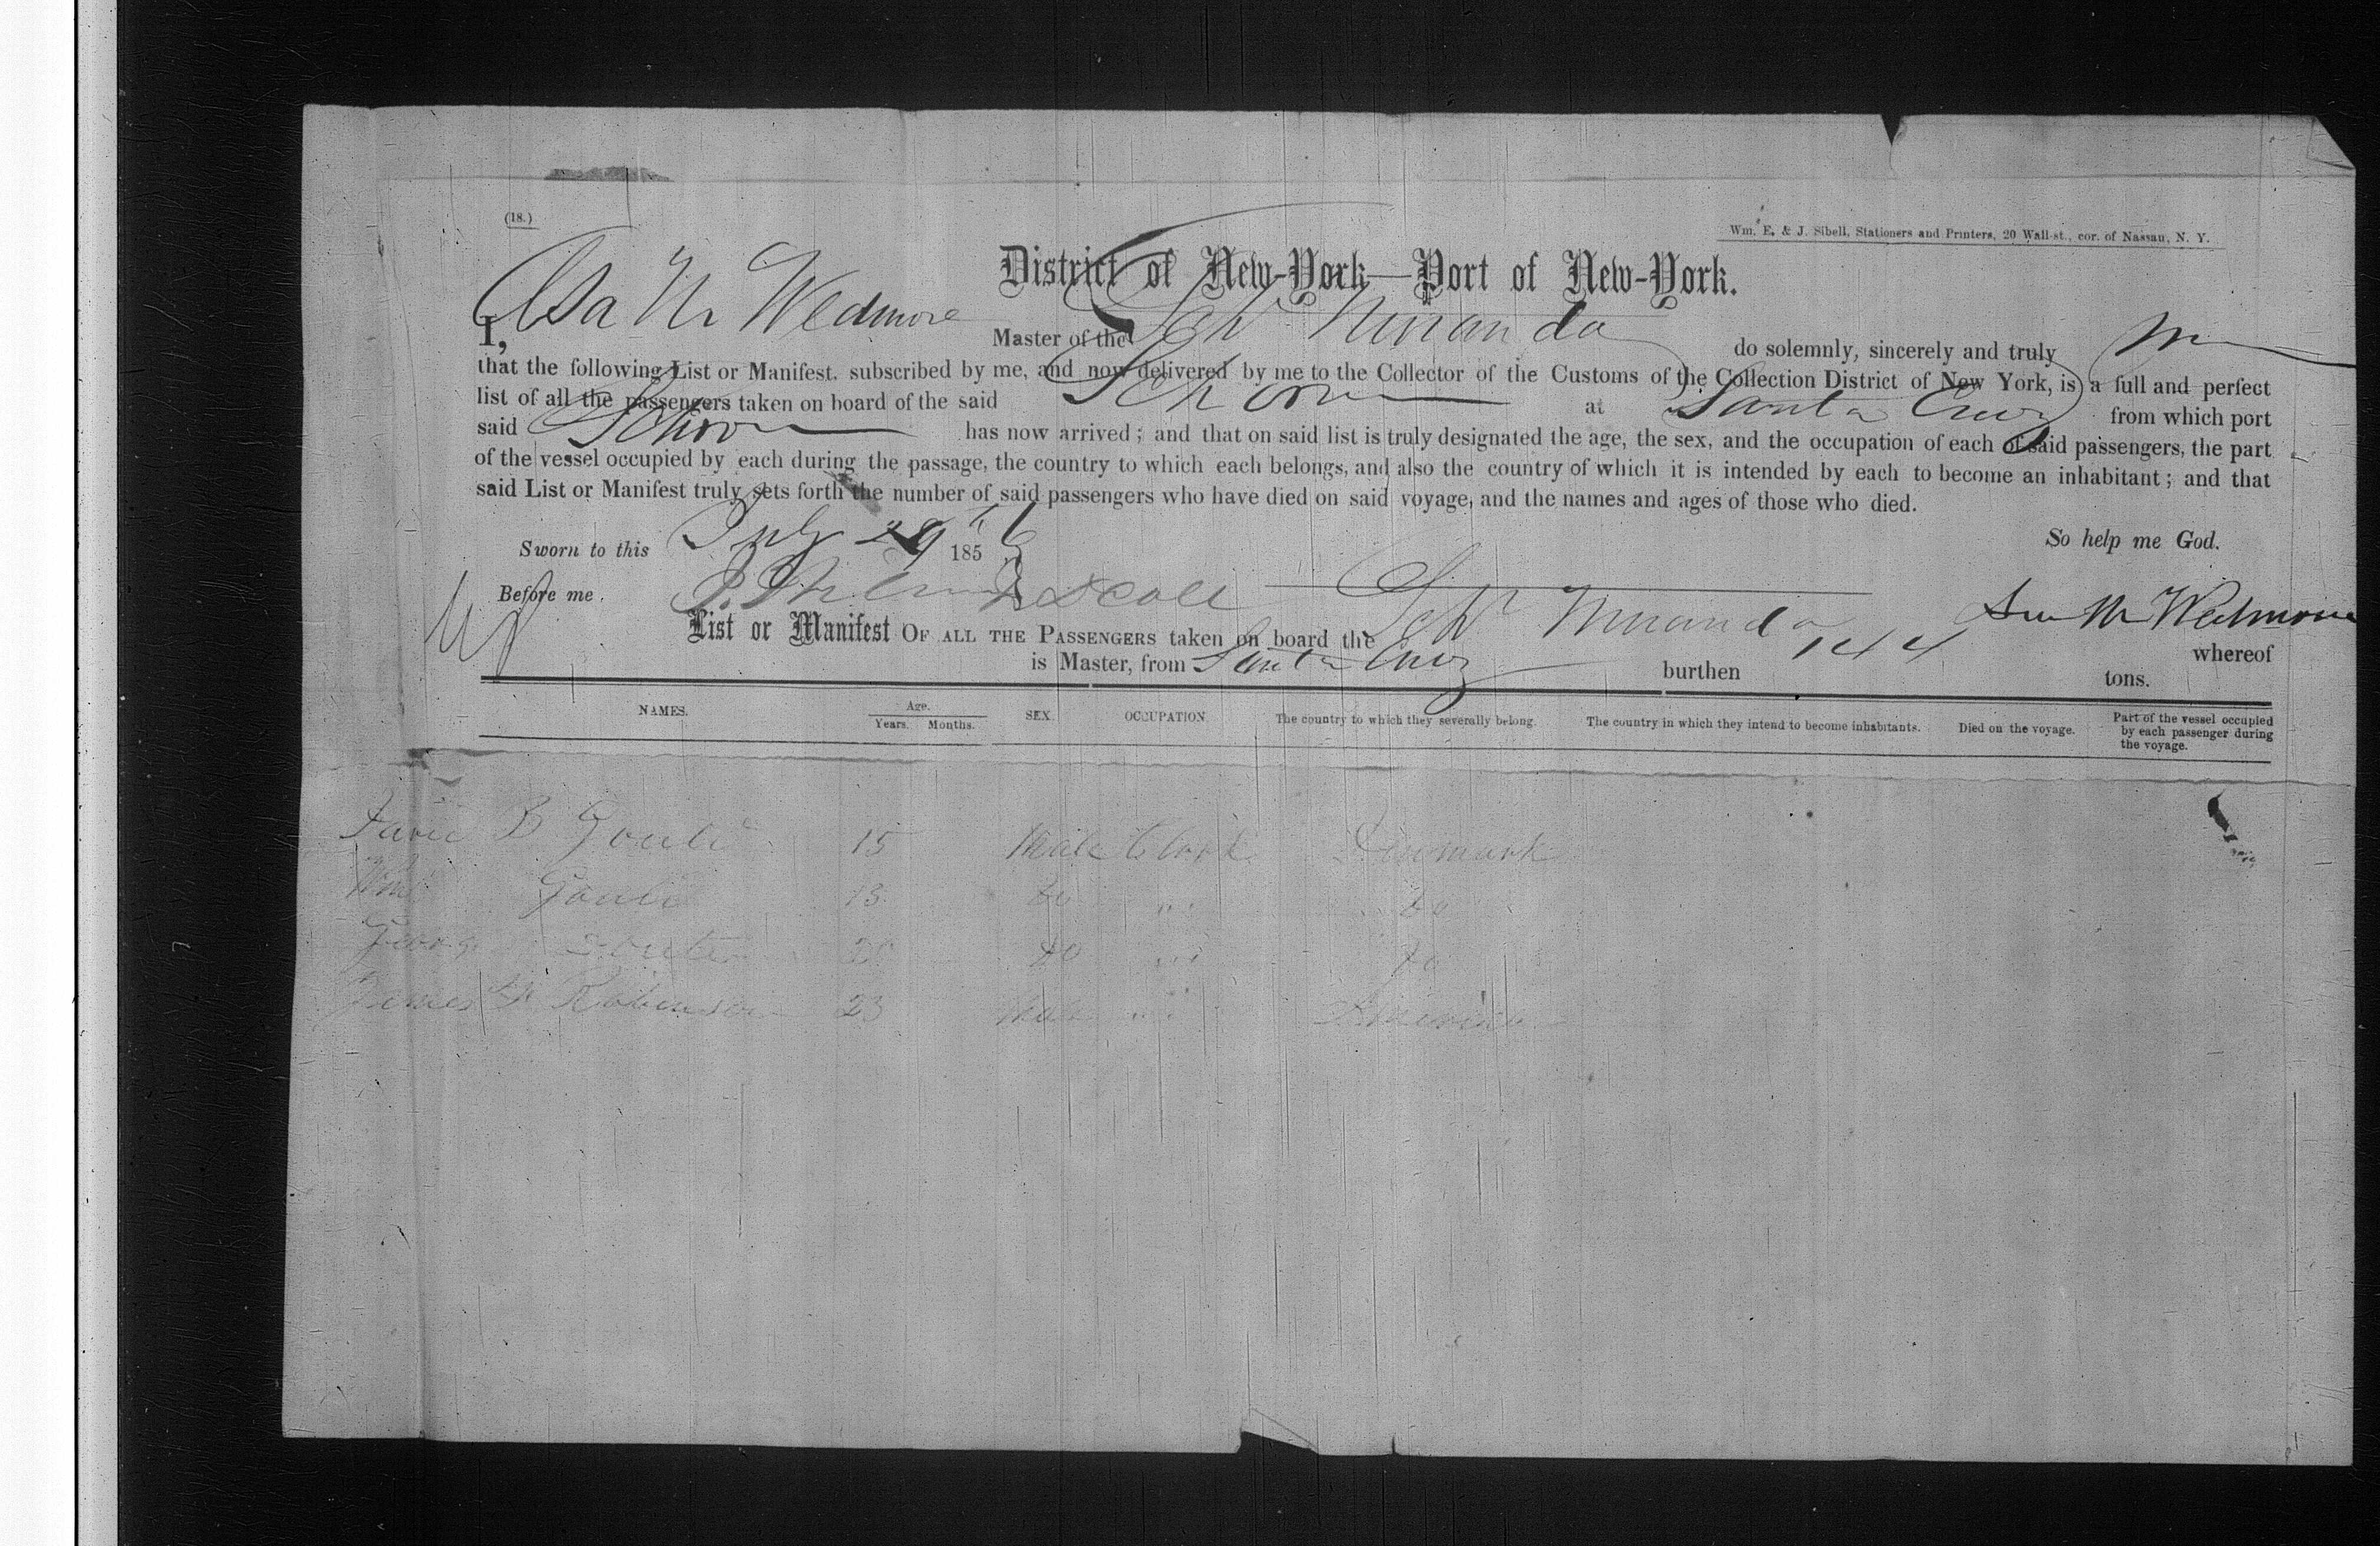 (18.)
Wm. E. & J. Sibell, Stationers and Printers, 20 Wall-st., cor. of Nassau, N. Y.
District of New-York—Port of New-York.
I, Asa W Wedmore Master of the Schr Miranda do solemnly, sincerely and truly
that the following List or Manifest. subscribed by me, and now delivered by me to the Collector of the Customs of the Collection District of New York, is a full and perfect
list of all the passengers taken on board of the said Schoon at Santa Cruz from which port
said Schoon has now arrived; and that on said list is truly designated the age, the sex, and the occupation of each of said passengers, the part
of the vessel occupied by each during the passage, the country to which each belongs, and also the country of which it is intended by each to become an inhabitant; and that
said List or Manifest truly sets forth the number of said passengers who have died on said voyage, and the names and ages of those who died.
So help me God.
Sworn to this July 29 1856
Before me. Wedmore
List or Manifest OF ALL THE PASSENGERS taken on board the Schr Miranda whereof
is Master, from Santa Cruz burthen 144 tons.
NAMES. Age. Years. Months. SEX. OCCUPATION. The country to which they severally belong. The country in which they intend to become inhabitants. Died on the voyage. Part of the vessel occupied by each passenger during the voyage.
B 15 Male Clerk Denmark
13 do " do
George 20 do " do
James Robinson 23 Male " America